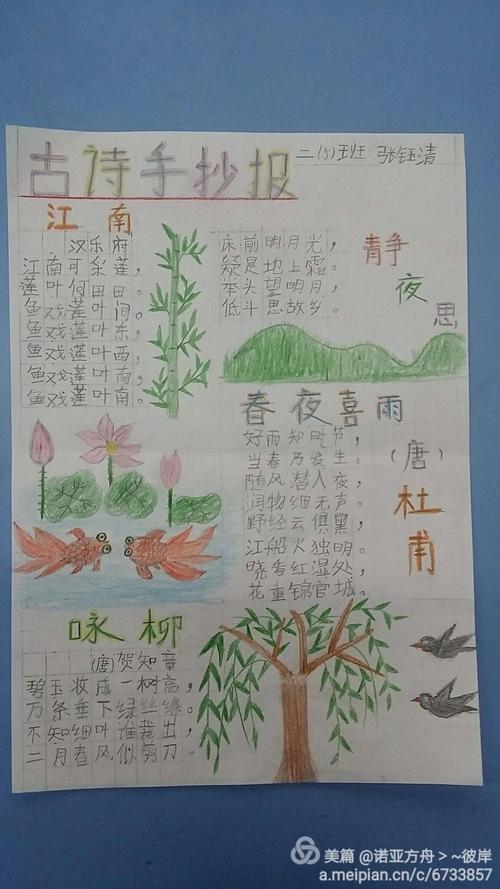 古诗手抄报
二(5)班 张钰清
江南
汉乐府
江南可梨莲，
莲叶何田田。
鱼戏莲叶间。
鱼戏莲叶东，
鱼戏莲叶西，
鱼戏莲叶南，
鱼戏莲叶南。
静夜思
床前明月光，
疑是地上霜。
头望明月，
低斗思故乡。
春夜喜雨
(唐)
杜甫
好雨知时节，
当春乃发生。
随风潜入夜，
润物细无声。
野经云俱黑，
江船火独明。
晓看红湿处，
花重锦官城。
咏柳
(唐)贺知章
碧玉妆成一树高，
万条垂下绿丝绦。
不知细叶谁裁出，
二月春风似剪刀。
美篇 @诺亚方舟>~彼岸
a.meipian.cn/c/6733857